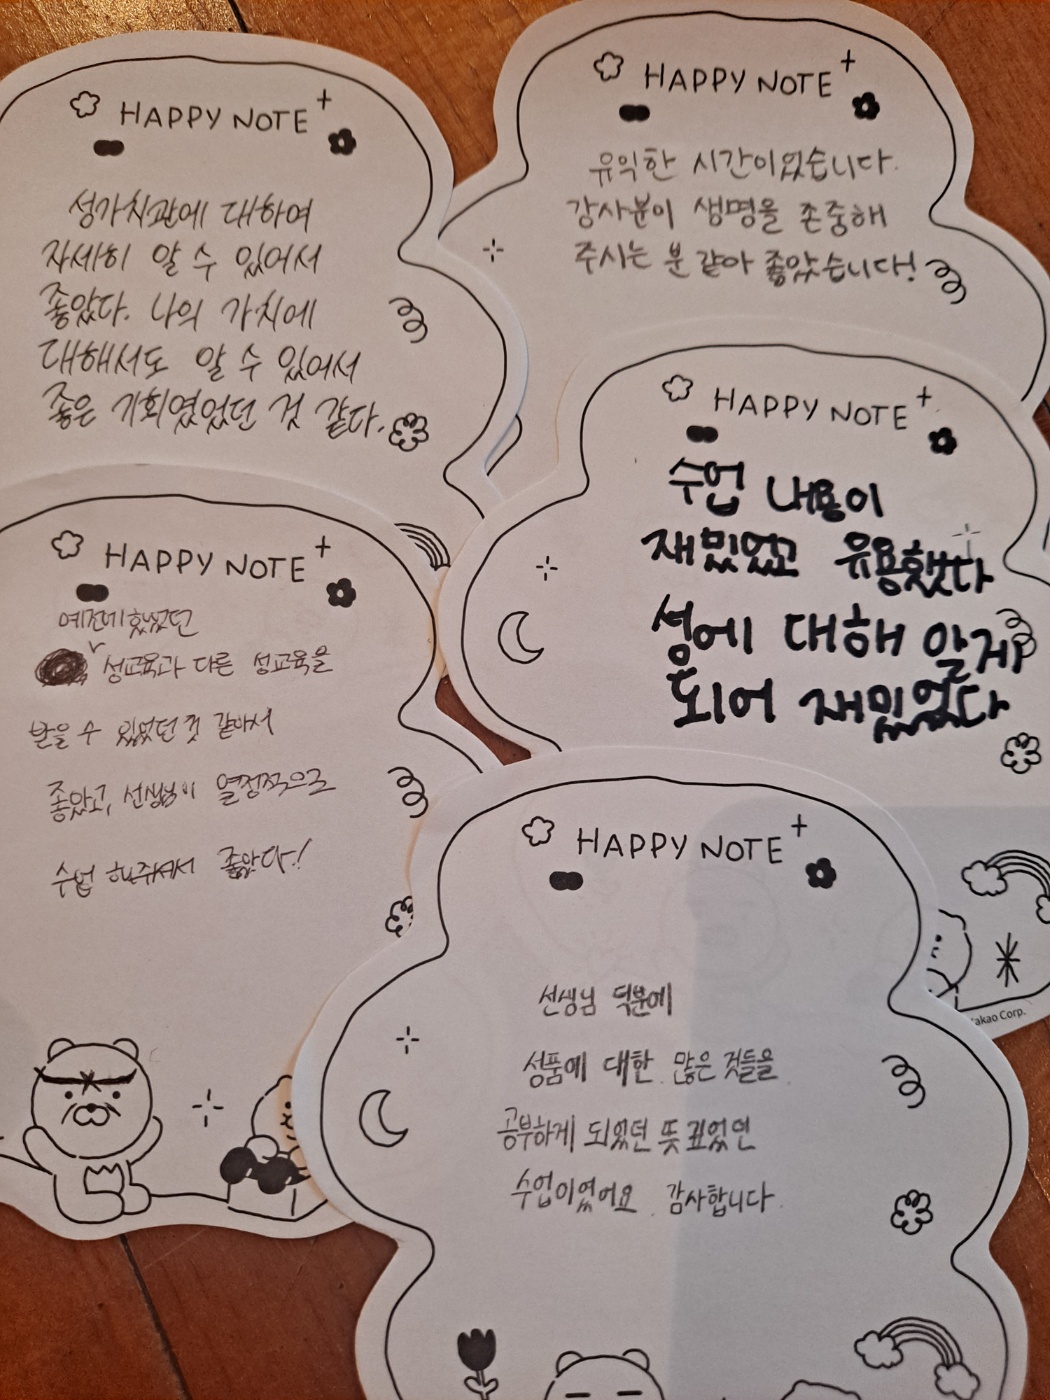 HAPPY NOTE
성가치관에 대하여
자세히 알 수 있어서
좋았다. 나의 가치에
대해서도 알 수 있어서
좋은 기회였었던 것 같다.
HAPPY NOTE
유익한 시간이었습니다.
강사분이 생명을 존중해
주시는 분 같아 좋았습니다!
HAPPY NOTE
수업 내용이
재밌었고 유용했다
성에 대해 알게
되어 재밌었다
HAPPY NOTE
예전에 했었던
성교육과 다른 성교육을
받을 수 있었던 것 같아서
좋았고, 선생님이 열정적으로
수업 해주셔서 좋았다!
HAPPY NOTE
선생님 덕분에
성품에 대한 많은 것들을
공부하게 되었던 뜻 깊었던
수업이였어요 감사합니다
akao Corp.